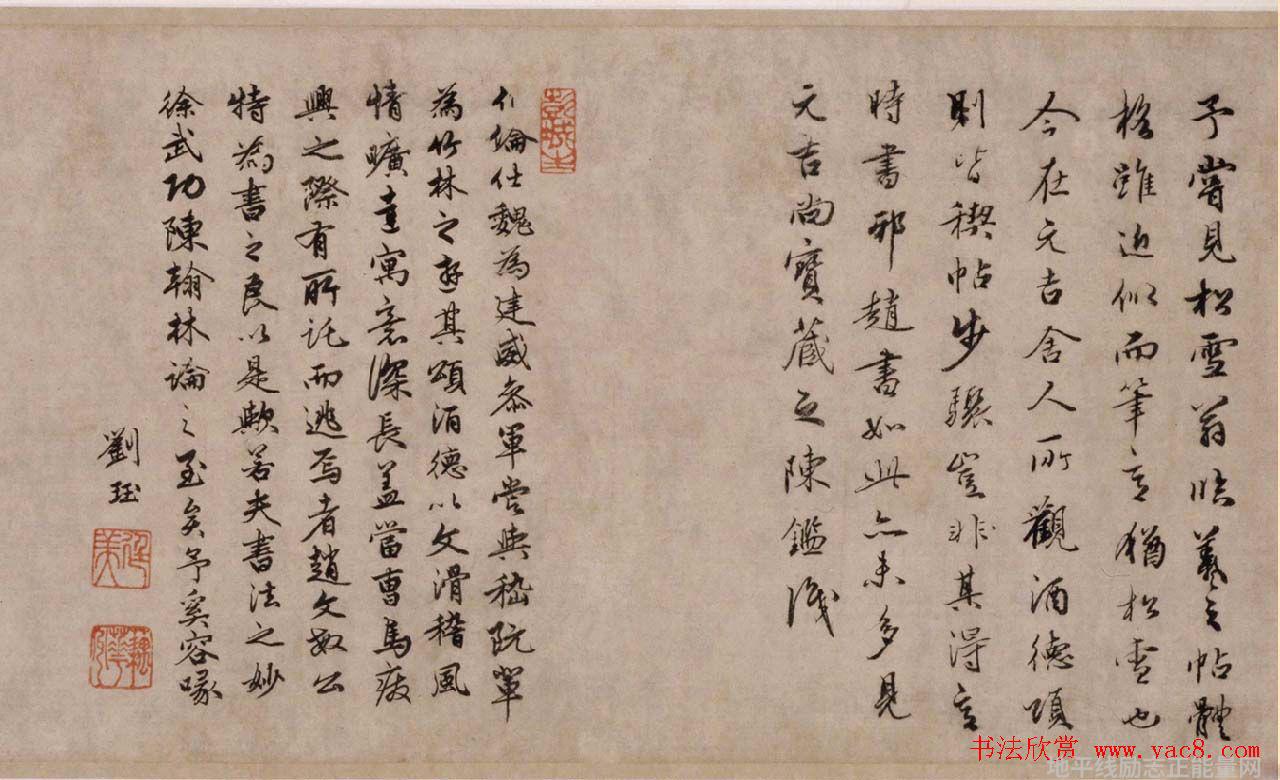 予嘗見松雪翁臨羲之帖體
格雖近似而筆意猶松雪也
今在元吉舍人所觀酒德頌
則皆稧帖步驟豈非其得意
時書邪趙書如此亦未多見
元吉尚寶藏之陳鑑識
彭城生
伯倫仕魏為建威參軍嘗與嵇阮輩
為竹林之遊其頌酒德以文滑稽風
情曠達寓意深長蓋當曹馬疲
興之際有所託而逃焉者趙文敏公
特為書之良以是歟若夫書法之妙
徐武功陳翰林論之至矣予奚容喙
劉珏
廷美
書法欣赏 www.yac8.com
地平线励志正能量网